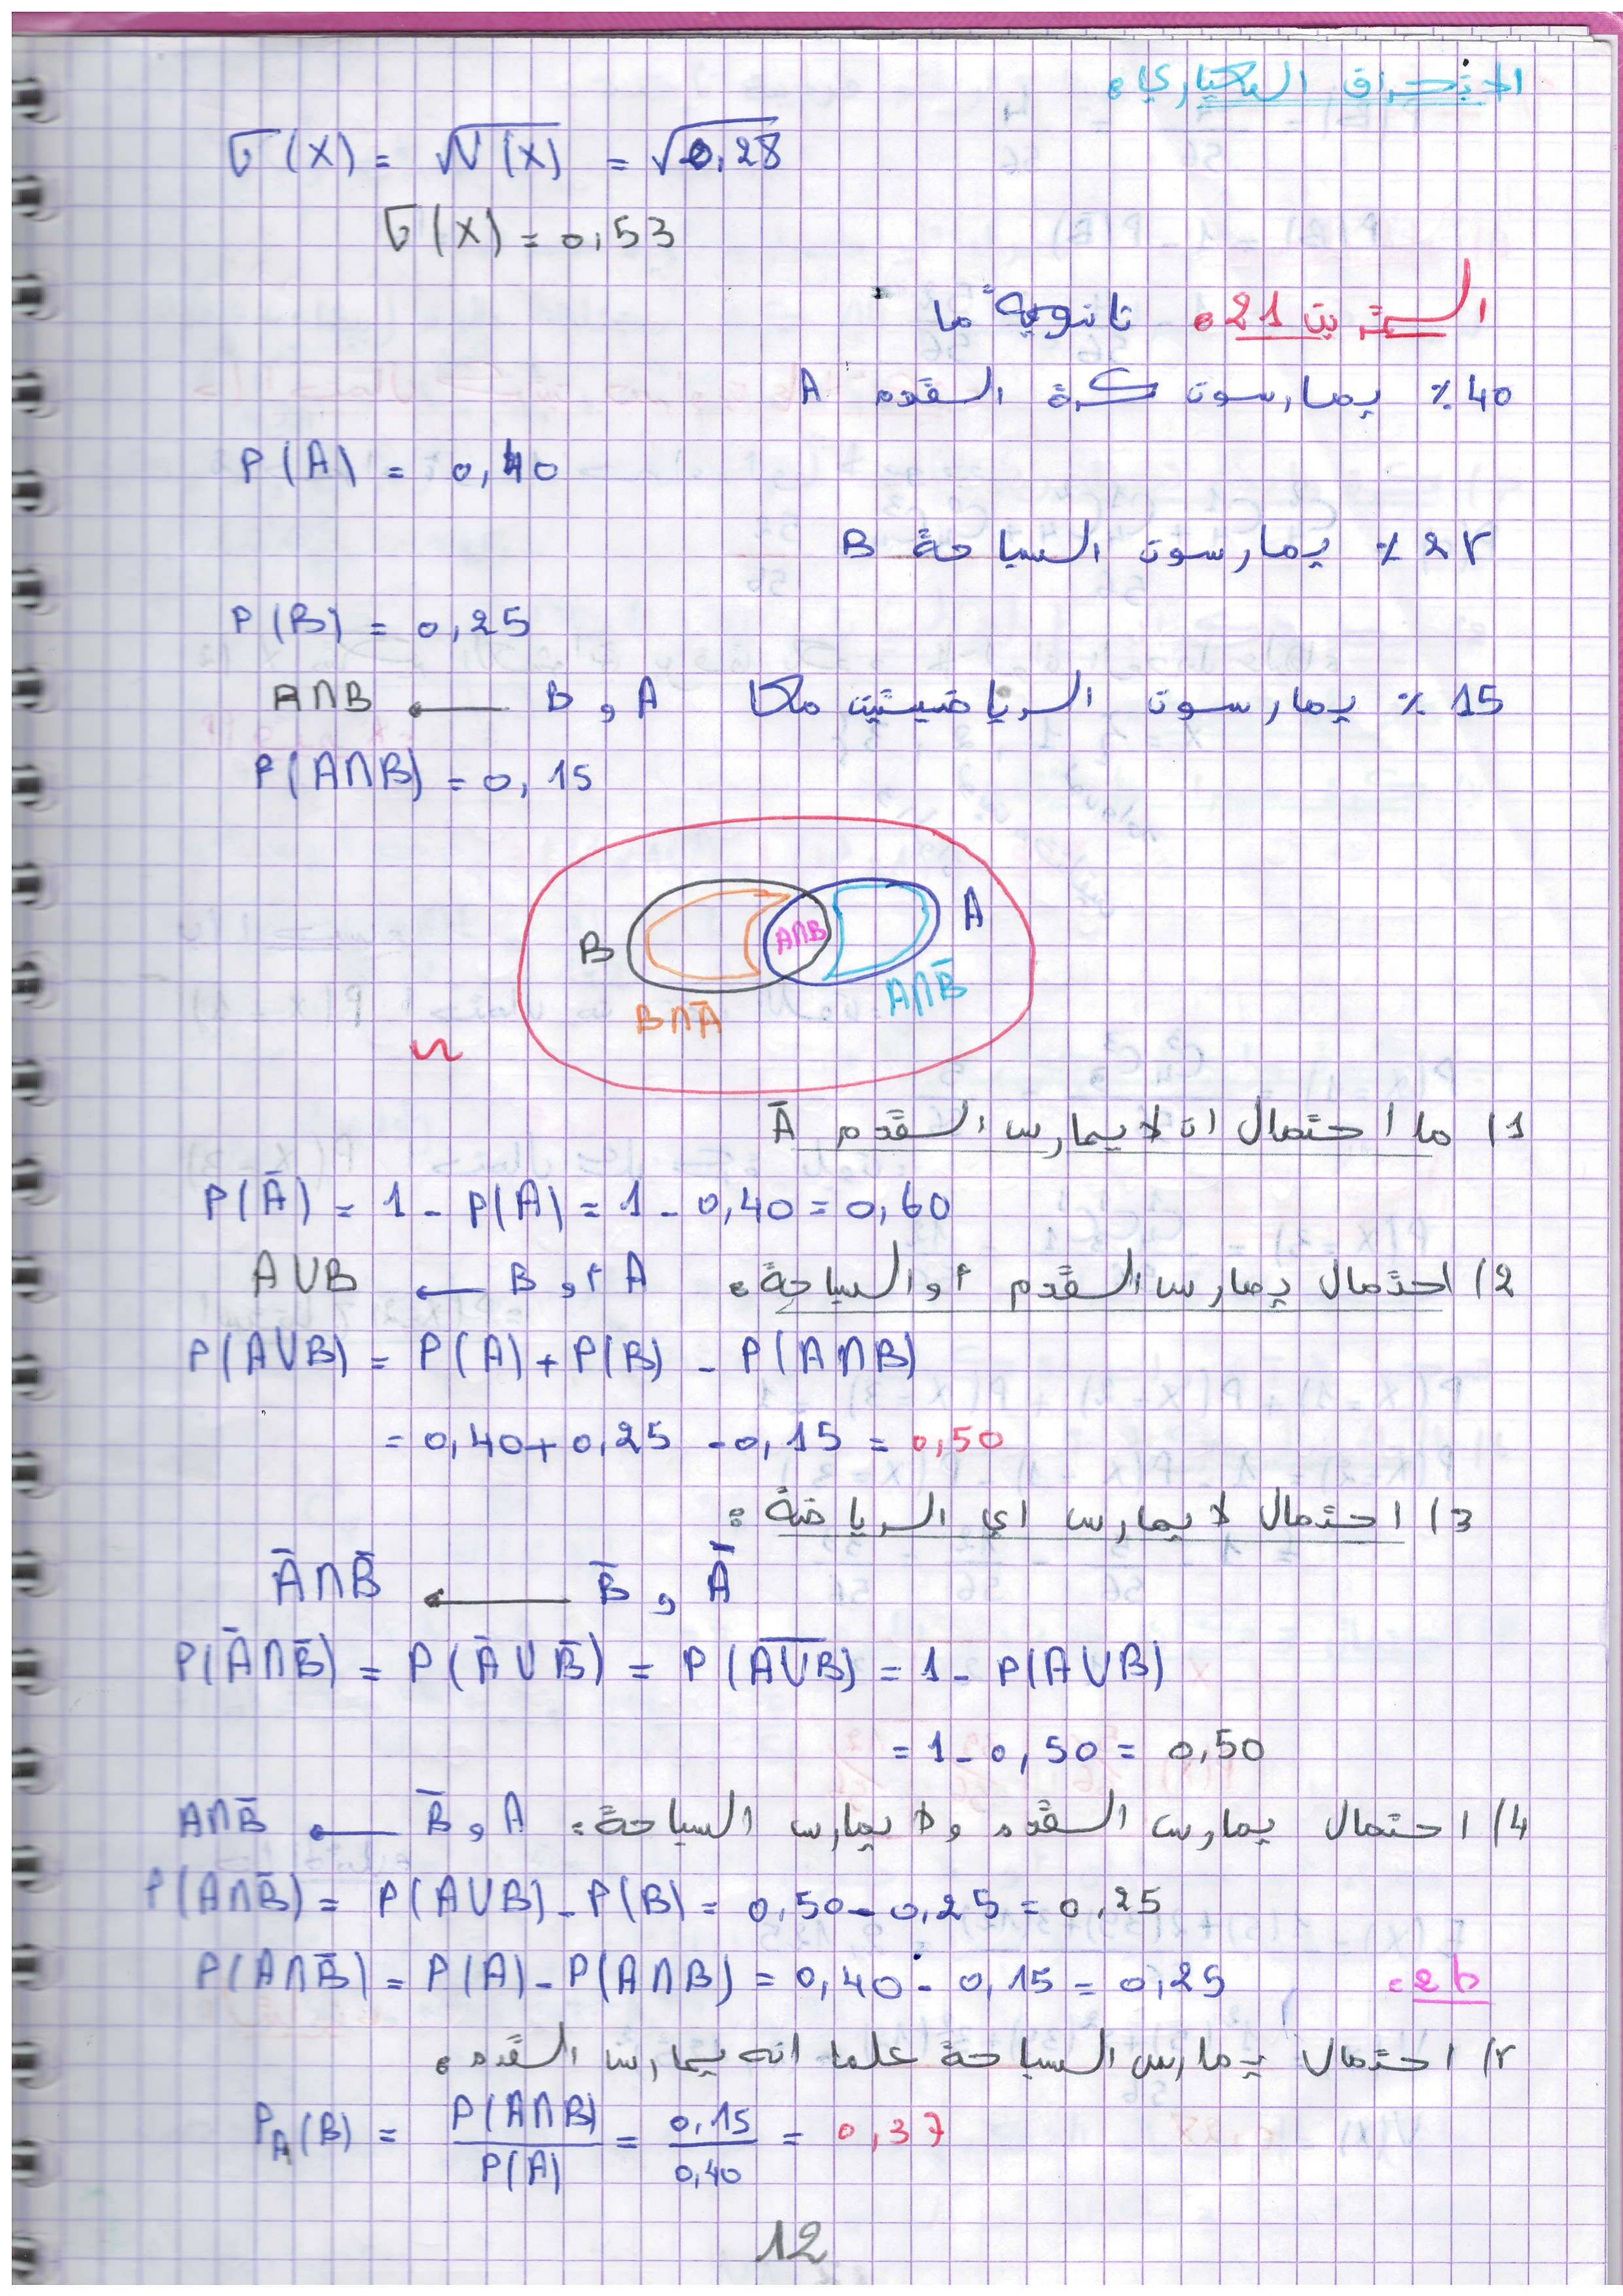 الانحراف المعياري:
σ(X) = √V(X) = √0,28
σ(X) = 0,53
التمرين 21: ثانوية ما
40 % يمارسون كرة القدم A
P(A) = 0,40
25 % يمارسون السباحة B
P(B) = 0,25
15 % يمارسون الرياضيتين معا A و B ← A∩B
P(A∩B) = 0,15
A
B
A∩B
A∩B̄
B∩Ā
Ω
1) ما احتمال ان لا يمارس القدم Ā
P(Ā) = 1 - P(A) = 1 - 0,40 = 0,60
2) احتمال يمارس القدم أو السباحة: A أو B ← A∪B
P(A∪B) = P(A) + P(B) - P(A∩B)
= 0,40 + 0,25 - 0,15 = 0,50
3) احتمال لا يمارس اي الرياضة:
Ā و B̄ ← Ā∩B̄
P(Ā∩B̄) = P(Ā∪B̄) = P(A̅∪̅B̅) = 1 - P(A∪B)
= 1 - 0,50 = 0,50
4) احتمال يمارس القدم ولا يمارس السباحة: A و B̄ ← A∩B̄
P(A∩B̄) = P(A∪B) - P(B) = 0,50 - 0,25 = 0,25
ط2: P(A∩B̄) = P(A) - P(A∩B) = 0,40 - 0,15 = 0,25
5) احتمال يمارس السباحة علما انه يمارس القدم:
P_A(B) = P(A∩B)/P(A) = 0,15/0,40 = 0,37
12